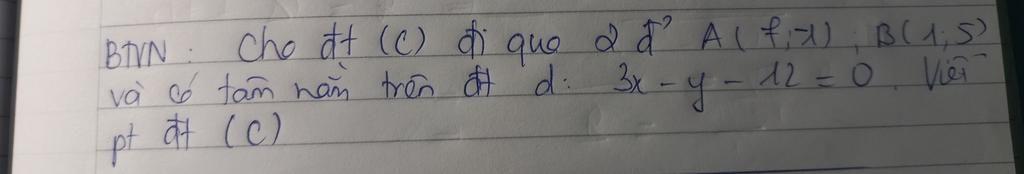 BTVN: Cho đt (C) đi qua 2 đ² A(7;-1); B(1;5)
và có tâm nằm trên đt d: 3x - y - 12 = 0. Viết
pt đt (C)